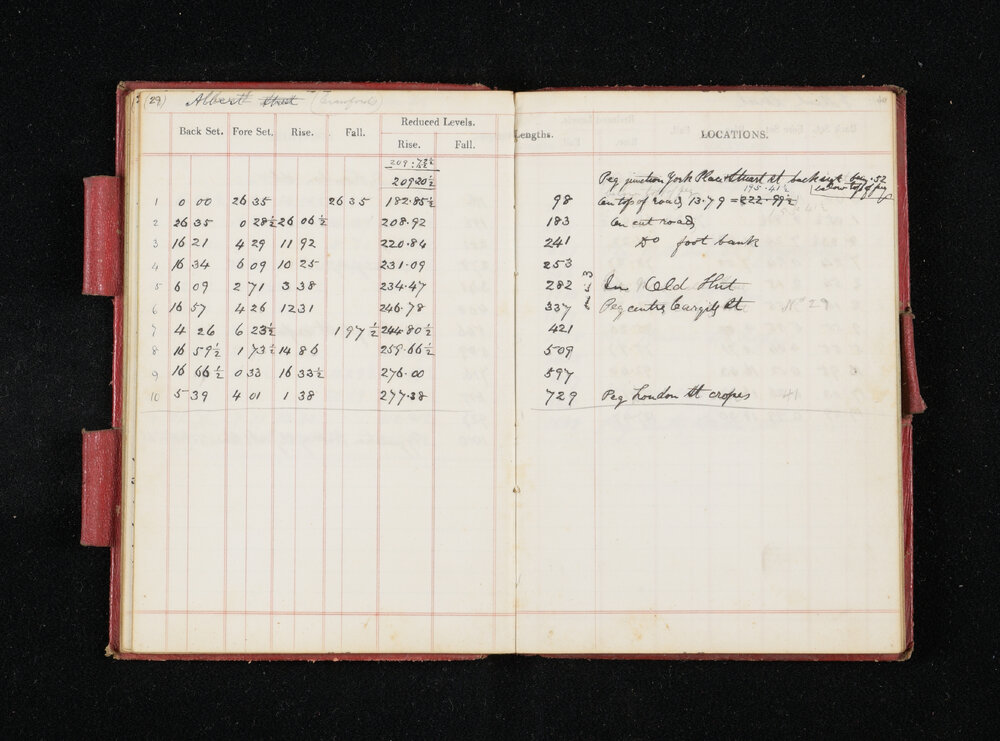 (29) Albert Street (Crawford)
Back Set. Fore Set. Rise. Fall. Reduced Levels. Rise. Fall. Lengths. LOCATIONS.
209.72½
20920½ Peg junction York Place & Stuart St back set being .52
below top of peg
195.41½
1 0 00 26 35 26 35 182.85½ 98 On top of road 13.79 = 222.99½
2 26 35 0 28½ 26 06½ 208.92 183 On cut road
3 16 21 4 29 11 92 220.84 241 Do foot bank
4 16 34 6 09 10 25 231.09 253
5 6 09 2 71 3 38 234.47 282 In Old Hut
6 16 57 4 26 12 31 246.78 337 Peg centre Cargill St No 29
7 4 26 6 23½ 1 97½ 244.80½ 421
8 16 59½ 1 73½ 14 86 259.66½ 509
9 16 66½ 0 33 16 33½ 276.00 597
10 5 39 4 01 1 38 277.38 729 Peg London St cropes 41